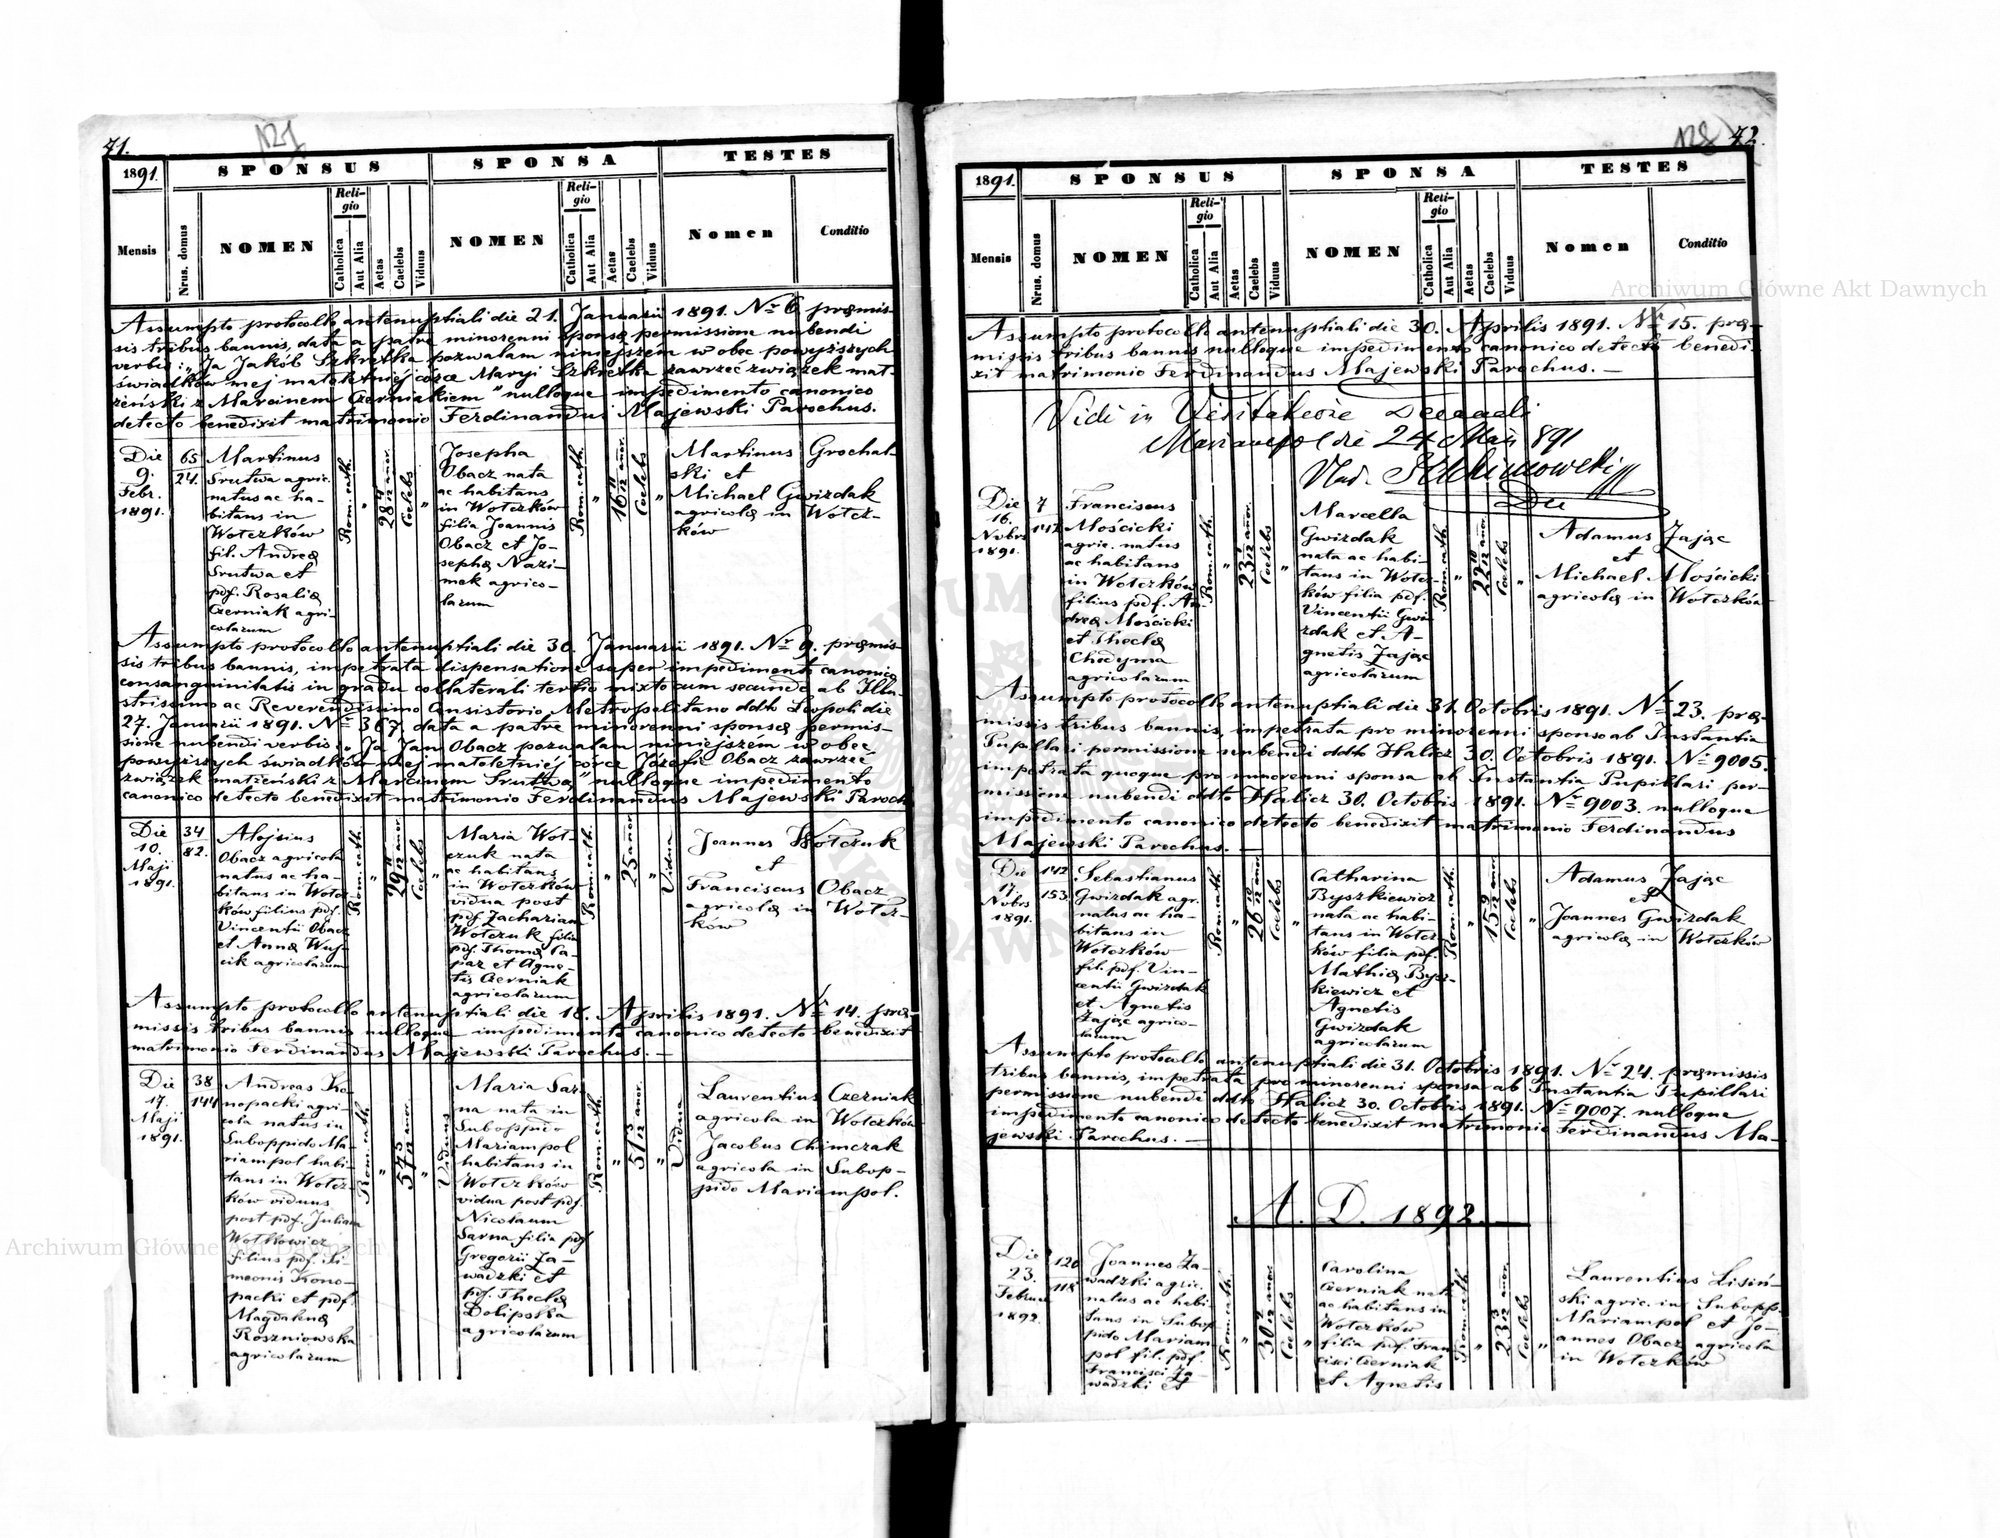 71.
121
1891.
SPONSUS
SPONSA
TESTES
Mensis
Nrus. domus
NOMEN
Religio
Catholica
Aut Alia
Aetas
Caelebs
Viduus
NOMEN
Religio
Catholica
Aut Alia
Aetas
Caelebs
Viduus
Nomen
Conditio
Assumpto protocollo antenuptiali die 21. Januarii 1891. Nr 6. præmis-
sis tribus bannis, data a patre minorenni sponsæ permissione nubendi
verbis: „Ja Jakób Szkretka pozwalam niniejszem w obec powyższych
świadków mej małoletniéj córce Maryi Szkretka zawrzéć związek mał-
żeński z Marcinem Czerniakiem" nulloque impedimento canonico
detecto benedixit matrimonio Ferdinandus Majewski Parochus.
Die
9.
Febr.
1891.
65
24.
Martinus
Srutwa agric.
natus ac ha-
bitans in
Wołczków
fil. Andreæ
Srutwa et
pdf. Rosaliæ
Czerniak agri-
colarum
Rom. cath.
"
28 4/12 anor.
Coelebs
"
Josepha
Obacz nata
ac habitans
in Wołczków
filia Joannis
Obacz et Jo-
sephæ Nazi-
mek agrico-
larum
Rom. cath.
"
16 11/12 anor.
Coelebs
"
Martinus Grochal-
ski et
Michael Gwizdak
agricolæ in Wołcz-
ków
Assumpto protocollo antenuptiali die 30. Januarii 1891. Nr 9. præmis-
sis tribus bannis, impetrata dispensatione super impedimento canonico
consanguinitatis in gradu collaterali tertio mixto cum secundo ab Illu-
strissimo ac Reverendissimo Consistorio Metropolitano ddto Leopoli die
27. Januarii 1891. Nr 367, data a patre minorenni sponsæ permis-
sione nubendi verbis: „Ja Jan Obacz pozwalam niniejszém w obec
powyższych świadków mej małoletniéj córce Józefie Obacz zawrzéć
związek małżeński z Marcinem Srutwą" nulloque impedimento
canonico detecto benedixit matrimonio Ferdinandus Majewski Paroch
Die
10.
Maji
1891.
34
82.
Alojsius
Obacz agricola
natus ac ha-
bitans in Wołcz-
ków filius pdf.
Vincentii Obacz
et Annæ Wuj-
cik agricolarum
Rom. cath.
"
29 11/12 anor.
Coelebs
"
Maria Woł-
czuk nata
ac habitans
in Wołczków
vidua post
pdf Zachariam
Wołczuk filia
pdf. Thomæ Ła-
piaz et Agne-
tis Czerniak
agricolarum
Rom. cath.
"
25 anor.
"
Vidua
Joannes Wołczuk
et
Franciscus Obacz
agricolæ in Wołcz-
ków
Assumpto protocollo antenuptiali die 18. Aprilis 1891. Nr 14. præ-
missis tribus bannis nulloque impedimento canonico detecto benedixit
matrimonio Ferdinandus Majewski Parochus. —
Die
17.
Maji
1891.
38
144
Andreas Ko-
nopacki agri-
cola natus in
Suboppido Ma-
riampol habi-
tans in Wołcz-
ków viduus
post pdf. Juliam
Wołkowicz
filius pdf. Si-
meonis Kono-
packi et pdf.
Magdalenæ
Roszniowska
agricolarum
Rom. cath.
"
54 5/12 anor.
"
Viduus
Maria Sar-
na nata in
Suboppido
Mariampol
habitans in
Wołczków
vidua post pdf.
Nicolaum
Sarna filia pdf
Gregorii Za-
wadzki et
pdf. Theclæ
Dolipolka
agricolarum
Rom. cath.
"
51 3/12 anor.
"
Vidua
Laurentius Czerniak
agricola in Wołczków
Jacobus Chimczak
agricola in Subop-
pido Mariampol.
72.
128
1891.
SPONSUS
SPONSA
TESTES
Mensis
Nrus. domus
NOMEN
Religio
Catholica
Aut Alia
Aetas
Caelebs
Viduus
NOMEN
Religio
Catholica
Aut Alia
Aetas
Caelebs
Viduus
Nomen
Conditio
Assumpto protocollo antenuptiali die 30. Aprilis 1891. Nr 15. præ-
missis tribus bannis nulloque impedimento canonico detecto benedi-
xit matrimonio Ferdinandus Majewski Parochus. —
Vidi in Visitatione Decanali
Mariampol die 24 Maii 891
Vlad.
Dec
Die
16.
Nvbrs
1891.
7
142
Franciscus
Mościcki
agric. natus
ac habitans
in Wołczków
filius pdf. An-
dreæ Mościcki
et Theclæ
Chodyma
agricolarum
Rom. cath.
"
23 1/12 anor.
Coelebs
"
Marcella
Gwizdak
nata ac habi-
tans in Wołcz-
ków filia pdf.
Vincentii Gwi-
zdak et A-
gnetis Zając
agricolarum
Rom. cath.
"
22 10/12 anor.
Coelebs
"
Adamus Zając
et
Michael Mościcki
agricolæ in Wołczków
Assumpto protocollo antenuptiali die 31. Octobris 1891. Nr 23. præ-
missis tribus bannis, impetrata pro minorenni sponso ab Instantia
Pupillari permissione nubendi ddto Halicz 30. Octobris 1891. Nr 9005.
impetrata quoque pro minorenni sponsa ab Instantia Pupillari per-
missione nubendi ddto Halicz 30. Octobris 1891. Nr 9003. nulloque
impedimento canonico detecto benedixit matrimonio Ferdinandus
Majewski Parochus. —
Die
17.
Nvbrs
1891.
142
153.
Sebastianus
Gwizdak agr.
natus ac ha-
bitans in
Wołczków
fil. pdf. Vin-
centii Gwizdak
et Agnetis
Zając agrico-
larum
Rom. cath.
"
26 10/12 anor.
Coelebs
"
Catharina
Byszkiewicz
nata ac habi-
tans in Wołcz-
ków filia pdf.
Mathiæ Bysz-
kiewicz et
Agnetis
Gwizdak
agricolarum
Rom. cath.
"
15 9/12 anor.
Coelebs
"
Adamus Zając
et
Joannes Gwizdak
agricolæ in Wołczków
Assumpto protocollo antenuptiali die 31. Octobris 1891. Nr 24. præmissis
tribus bannis, impetrata pro minorenni sponsa ab Instantia Pupillari
permissione nubendi ddto Halicz 30. Octobris 1891. Nr 9007. nulloque
impedimento canonico detecto benedixit matrimonio Ferdinandus Ma-
jewski Parochus. —
A. D. 1892.
Die
23.
Februar
1892.
120
118
Joannes Za-
wadzki agric.
natus ac habi-
tans in Subop-
pido Mariam-
pol fil. pdf.
Francisci Za-
wadzki et
Rom. cath.
"
30 2/12 anor.
Coelebs
"
Carolina
Czerniak nata
ac habitans in
Wołczków
filia pdf. Fran-
cisci Czerniak
et Agnetis
Rom. cath.
"
23 3/12 anor.
Coelebs
"
Laurentius Lisiń-
ski agric. in Subopp.
Mariampol et Jo-
annes Obacz agricola
in Wołczków
Archiwum Główne Akt Dawnych
Archiwum Główne Akt Dawnych